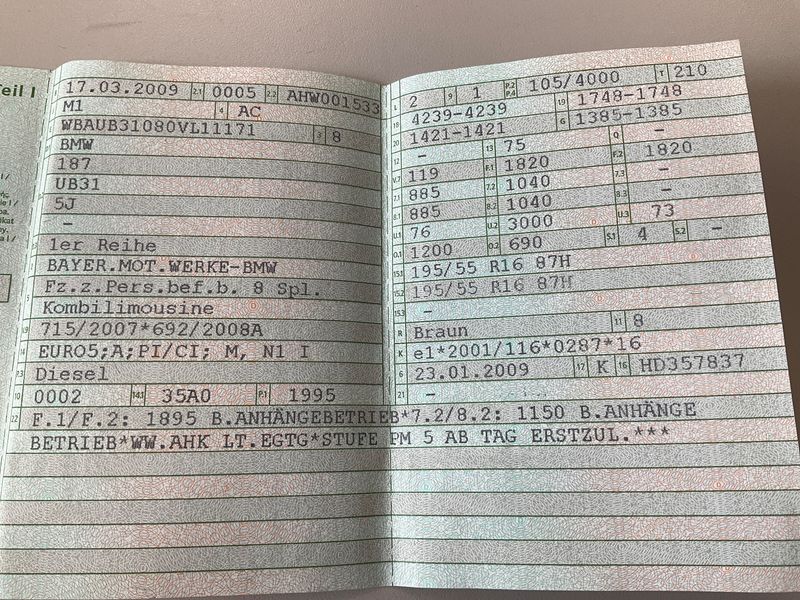 Teil I
17.03.2009 2.1 0005 2.2 AHW001533
M1 4 AC
WBAUB31080VL11171 3 8
BMW
187
UB31
5J
–
1er Reihe
BAYER.MOT.WERKE-BMW
Fz.z.Pers.bef.b. 8 Spl.
Kombilimousine
715/2007*692/2008A
EURO5;A;PI/CI; M, N1 I
P.3 Diesel
10 0002 14.1 35A0 P.1 1995
22 F.1/F.2: 1895 B.ANHÄNGEBETRIEB*7.2/8.2: 1150 B.ANHÄNGE
BETRIEB*WW.AHK LT.EGTG*STUFE PM 5 AB TAG ERSTZUL.***
L 2 9 1 P.2 P.4 105/4000 T 210
18 4239-4239 19 1748-1748
20 1421-1421 6 1385-1385
12 – 13 75 Q –
V.7 119 F.1 1820 F.2 1820
7.1 885 7.2 1040 7.3 –
8.1 885 8.2 1040 8.3 –
U.1 76 U.2 3000 U.3 73
O.1 1200 O.2 690 S.1 4 S.2 –
15.1 195/55 R16 87H
15.2 195/55 R16 87H
15.3 –
R Braun 11 8
K e1*2001/116*0287*16
6 23.01.2009 17 K 16 HD357837
21 –